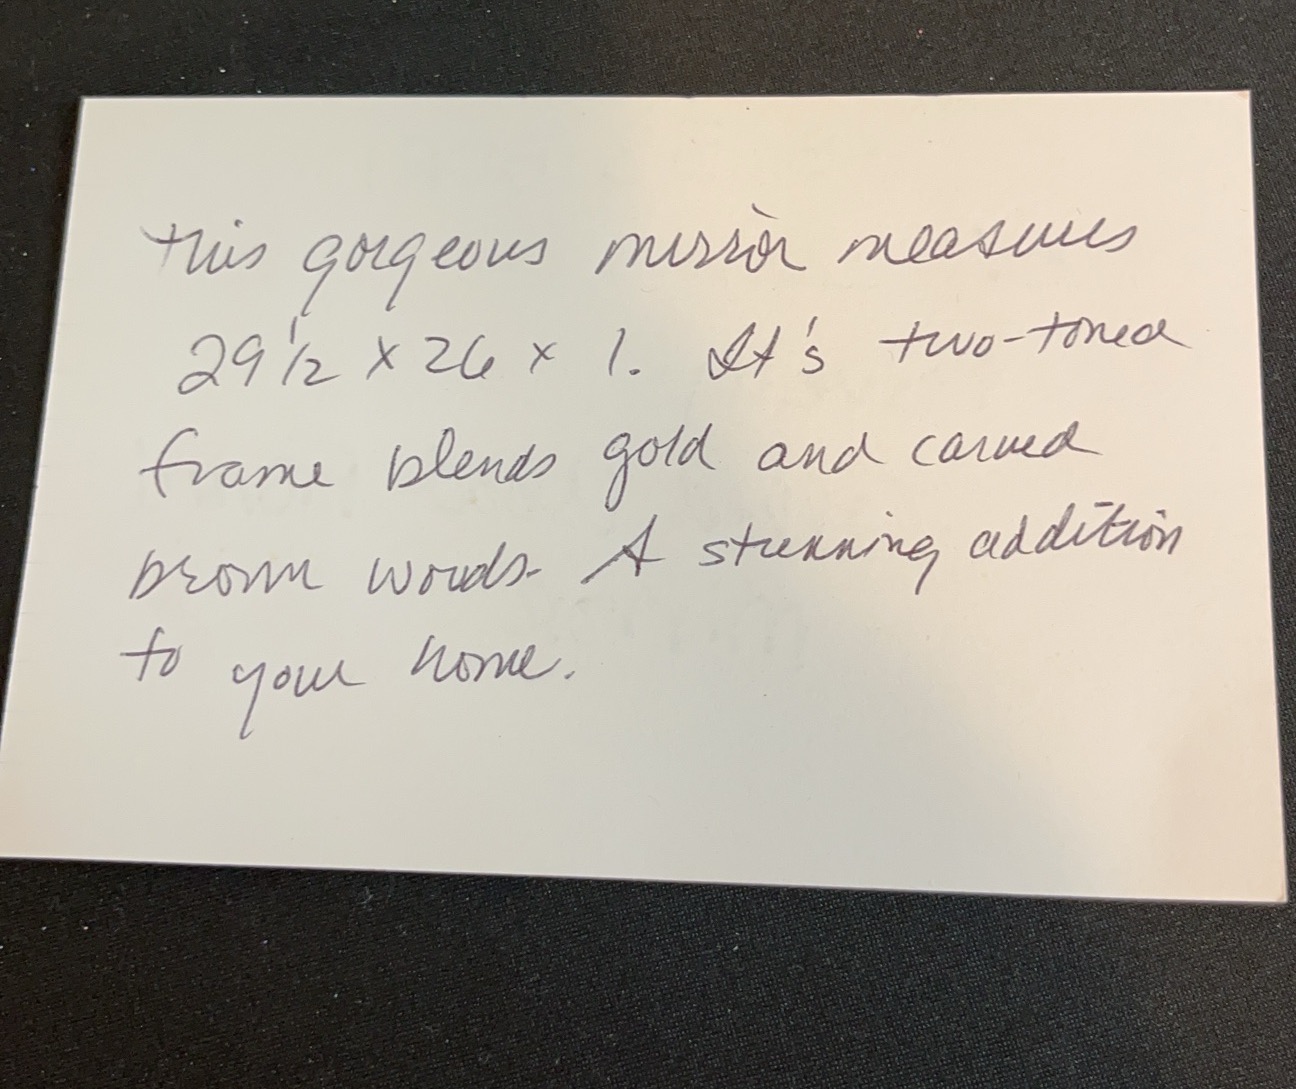 This gorgeous mirror measures
29 1/2 x 26 x 1. It's two-toned
frame blends gold and carved
brown woods. A stunning addition
to your home.